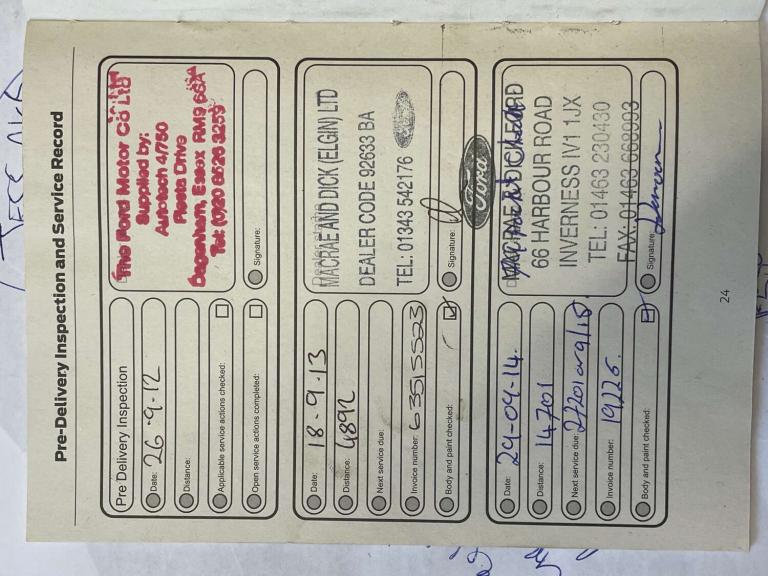 Pre-Delivery Inspection and Service Record
Pre Delivery Inspection
Date: 26-9-12
Distance:
Applicable service actions checked:
Open service actions completed:
The Ford Motor Co Ltd
Supplied by:
Autotech 4/750
Fiesta Drive
Dagenham, Essex RM9 6SA
Tel: (020 8526 3259
Signature:
Date: 18-9-13
Distance: 4892
Next service due:
Invoice number: 63515523
Body and paint checked:
MACRAE AND DICK (ELGIN) LTD
DEALER CODE 92633 BA
TEL: 01343 542176
Signature:
Ford
Date: 29-09-14.
Distance: 14701
Next service due:
Invoice number: 19226.
Body and paint checked:
MACRAE & DICK FORD
66 HARBOUR ROAD
INVERNESS IV1 1JX
TEL: 01463 230430
FAX: 01463 668993
Signature:
24